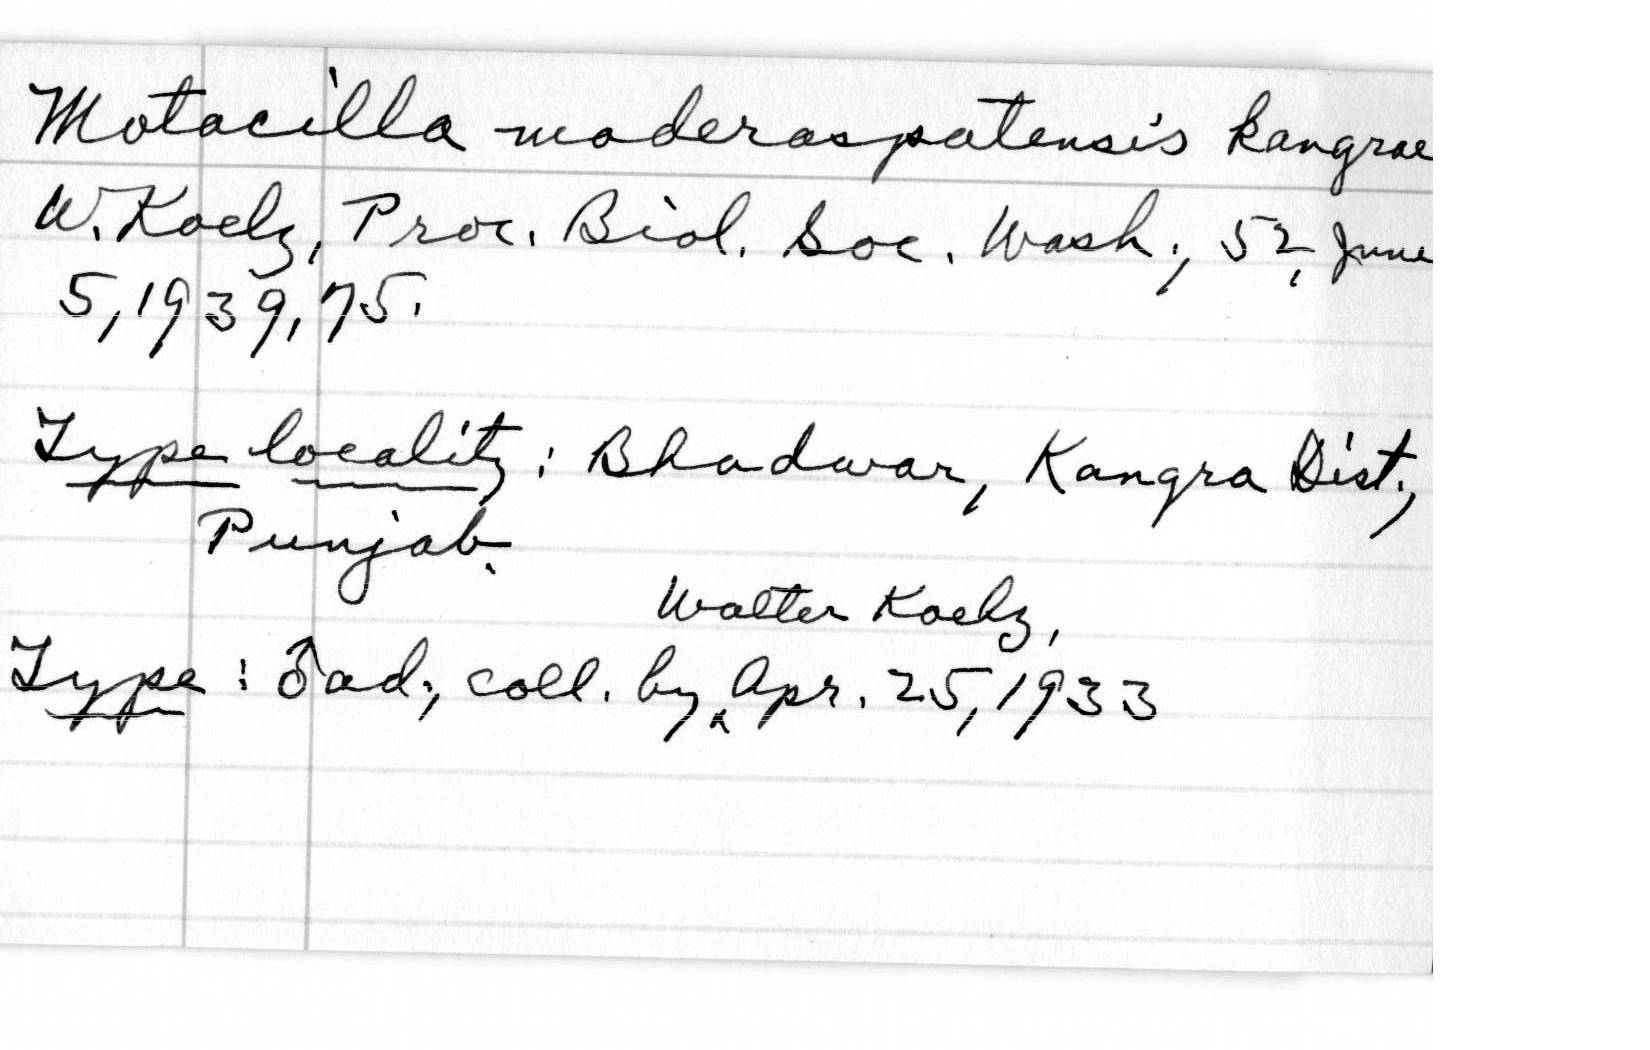 Motacilla maderaspatensis kangrae
W. Koelz, Proc. Biol. Soc. Wash., 52, June
5, 1939, 75.
Type locality: Bhadwar, Kangra Dist.,
Punjab.
Walter Koelz,
Type: ♂ ad., coll. by ^ Apr. 25, 1933